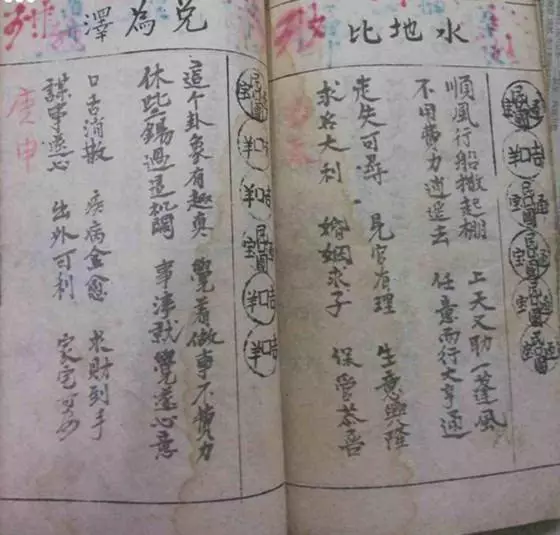 水地比
順風行船撒起棚 上天又助一蓬風
不用費力逍遥去 任意而行大亨通
走失可尋 見官有理 生意興隆
求名大利 婚姻求子 保管恭喜
兌為澤
這个卦象有趣真 覺着做事不費力
休些錯過這机関 事就覺遂心意
口舌消散 疾病全愈 求財到手
謀事遂心 出外可利 家宅
庚申